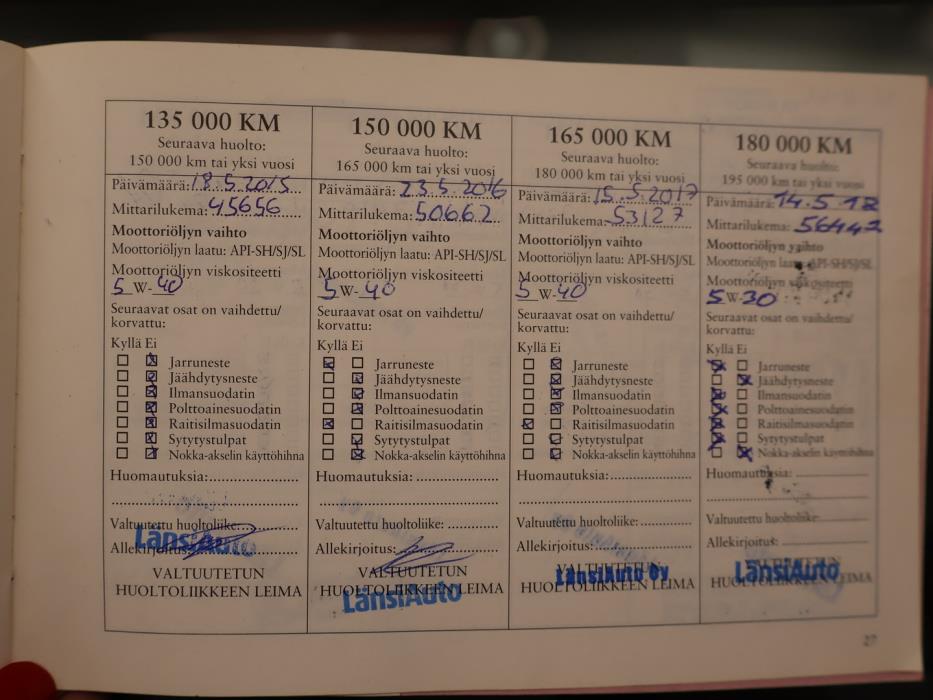 135 000 KM
Seuraava huolto:
150 000 km tai yksi vuosi
Päivämäärä: 18.5.2015
Mittarilukema: 45656
Moottoriöljyn vaihto
Moottoriöljyn laatu: API-SH/SJ/SL
Moottoriöljyn viskositeetti
5 W-40
Seuraavat osat on vaihdettu/
korvattu:
Kyllä Ei
Jarruneste
Jäähdytysneste
Ilmansuodatin
Polttoainesuodatin
Raitisilmasuodatin
Sytytystulpat
Nokka-akselin käyttöhihna
Huomautuksia:
Valtuutettu huoltoliike:
LänsiAuto
Allekirjoitus:
VALTUUTETUN
HUOLTOLIIKKEEN LEIMA
150 000 KM
Seuraava huolto:
165 000 km tai yksi vuosi
Päivämäärä: 23.5.2016
Mittarilukema: 50662
Moottoriöljyn vaihto
Moottoriöljyn laatu: API-SH/SJ/SL
Moottoriöljyn viskositeetti
5 W-40
Seuraavat osat on vaihdettu/
korvattu:
Kyllä Ei
Jarruneste
Jäähdytysneste
Ilmansuodatin
Polttoainesuodatin
Raitisilmasuodatin
Sytytystulpat
Nokka-akselin käyttöhihna
Huomautuksia:
Valtuutettu huoltoliike:
Allekirjoitus:
VALTUUTETUN
HUOLTOLIIKKEEN LEIMA
LänsiAuto
165 000 KM
Seuraava huolto:
180 000 km tai yksi vuosi
Päivämäärä: 15.5.2017
Mittarilukema: 53127
Moottoriöljyn vaihto
Moottoriöljyn laatu: API-SH/SJ/SL
Moottoriöljyn viskositeetti
5 W-40
Seuraavat osat on vaihdettu/
korvattu:
Kyllä Ei
Jarruneste
Jäähdytysneste
Ilmansuodatin
Polttoainesuodatin
Raitisilmasuodatin
Sytytystulpat
Nokka-akselin käyttöhihna
Huomautuksia:
Valtuutettu huoltoliike:
Allekirjoitus:
VALTUUTETUN
LänsiAuto Oy
HUOLTOLIIKKEEN LEIMA
180 000 KM
Seuraava huolto:
195 000 km tai yksi vuosi
Päivämäärä: 14.5.18
Mittarilukema: 56442
Moottoriöljyn vaihto
Moottoriöljyn laatu: API-SH/SJ/SL
Moottoriöljyn viskositeetti
5 W-30
Seuraavat osat on vaihdettu/
korvattu:
Kyllä Ei
Jarruneste
Jäähdytysneste
Ilmansuodatin
Polttoainesuodatin
Raitisilmasuodatin
Sytytystulpat
Nokka-akselin käyttöhihna
Huomautuksia:
Valtuutettu huoltoliike:
Allekirjoitus:
VALTUUTETUN
LänsiAuto
HUOLTOLIIKKEEN LEIMA
27